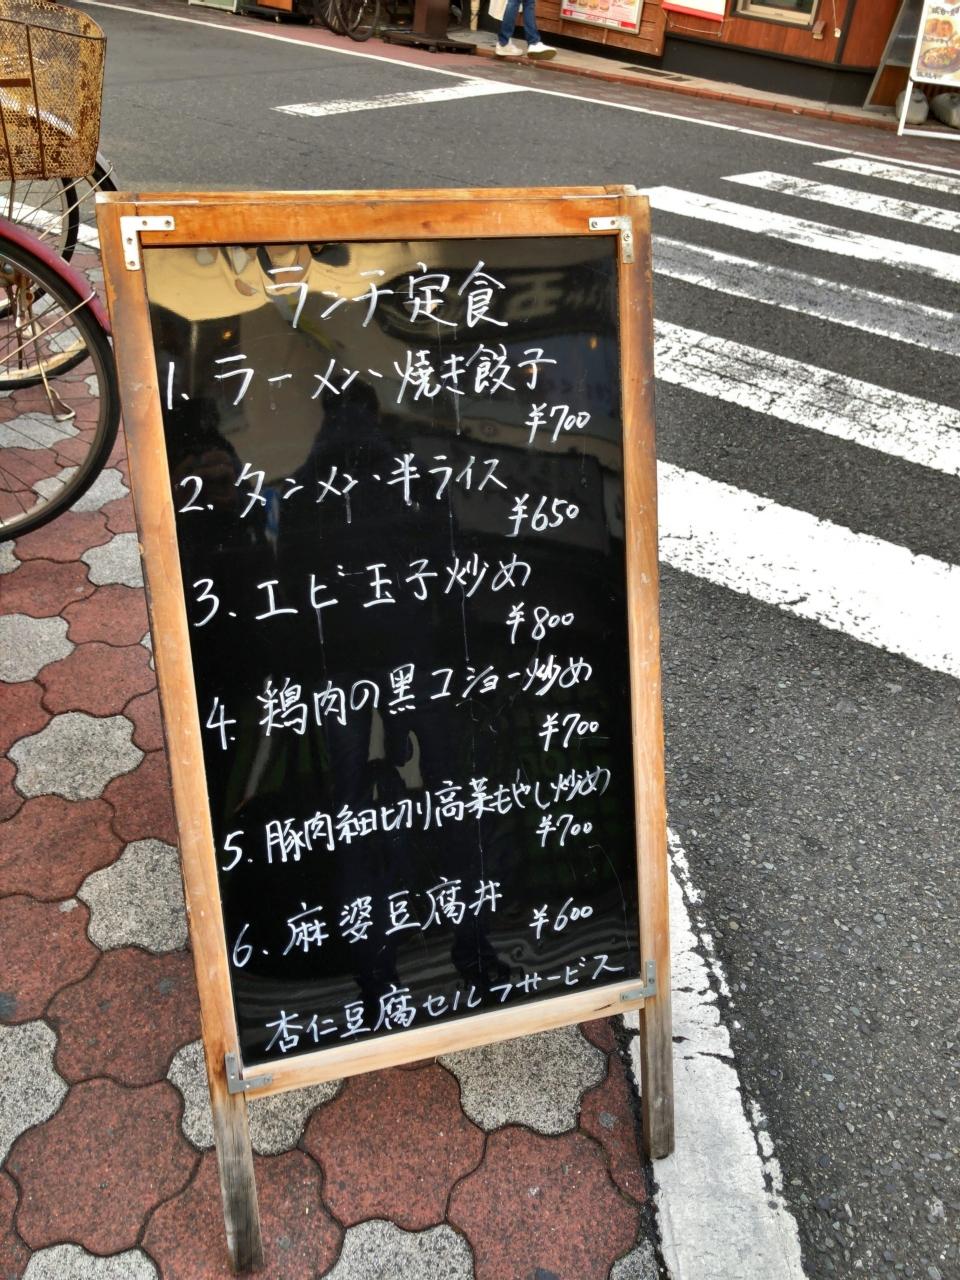 ランチ定食
1. ラーメン・焼き餃子
¥700
2. タンメン・半ライス
¥650
3. エビ玉子炒め
¥800
4. 鶏肉の黒コショー炒め
¥700
5. 豚肉細切り高菜もやし炒め
¥700
6. 麻婆豆腐丼
¥600
杏仁豆腐セルフサービス